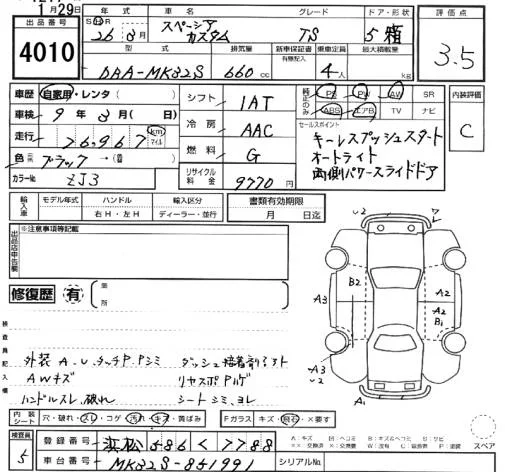 1月29日
出品番号
4010
年式 車名 グレード ドア・形状
S H 26年3月 スペーシア カスタム TS 5 箱
型式 排気量 新車保証書 乗車定員 最大積載量
有無記入
DAA-MK32S 660cc 4人 kg
評価点
3.5
車歴 自家用・レンタ( )
車検 9年3月(日)
走行 76,967 km マイル
色 ブラック→
カラーNo. ZJ3
シフト IAT
冷房 AAC
燃料 G
リサイクル料金 9770円
純正のみ PS PW AW SR
ABS エアB TV ナビ
セールスポイント
キーレスプッシュスタート
オートライト
両側パワースライドドア
内装評価
C
輸入車 モデル年式 ハンドル 輸入区分
右H・左H ディーラー・並行
書類有効期限
月 日迄
出品店申告欄
※注意事項等記載
修復歴 有 箇所
検査員記入欄
外装A.U.タッチP.Pシミ ダッシュ接着剤シミト
AWキズ リヤスポPハゲ
ハンドルスレ.破れ シートシミ.ヨレ
U2 A3 B2 A3 U2 A1 A2 A2 B1 A3
内装シート 穴・破れ・スレ・コゲ・汚れ・キズ・黄ばみ
Fガラス キズ・飛石・×要す
A:キズ U:凹 スペア
検査員 5
登録番号 浜松 586 く 7788
車台番号 MK32S-851991
シリアルNo.